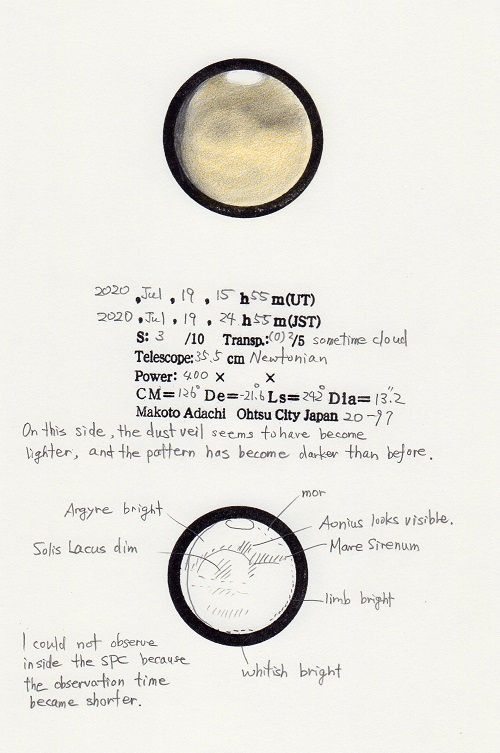 2020, Jul, 19, 15 h 55 m(UT)
2020, Jul, 19, 24 h 55 m(JST)
S: 3 /10 Transp.:(0)2/5 sometime cloud
Telescope: 35.5 cm Newtonian
Power: 400 × ×
CM=126° De=-21.6° Ls=242° Dia= 13".2
Makoto Adachi Ohtsu City Japan 20-97
On this side, the dust veil seems to have become
lighter, and the pattern has become darker than before.
mor
Argyre bright
Aonius looks visible.
Solis Lacus dim
Mare Sirenum
limb bright
whitish bright
I could not observe
inside the SPC because
the observation time
became shorter.